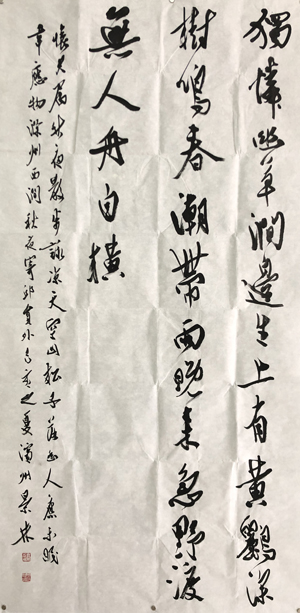 獨憐幽草澗邊生上有黃鸝深
樹鳴春潮帶雨晚来急野渡
無人舟自橫
懷君屬秋夜散步詠涼天空山松子落幽人應未眠
韋應物滁州西澗秋夜寄邱員外己亥之夏濱州景林